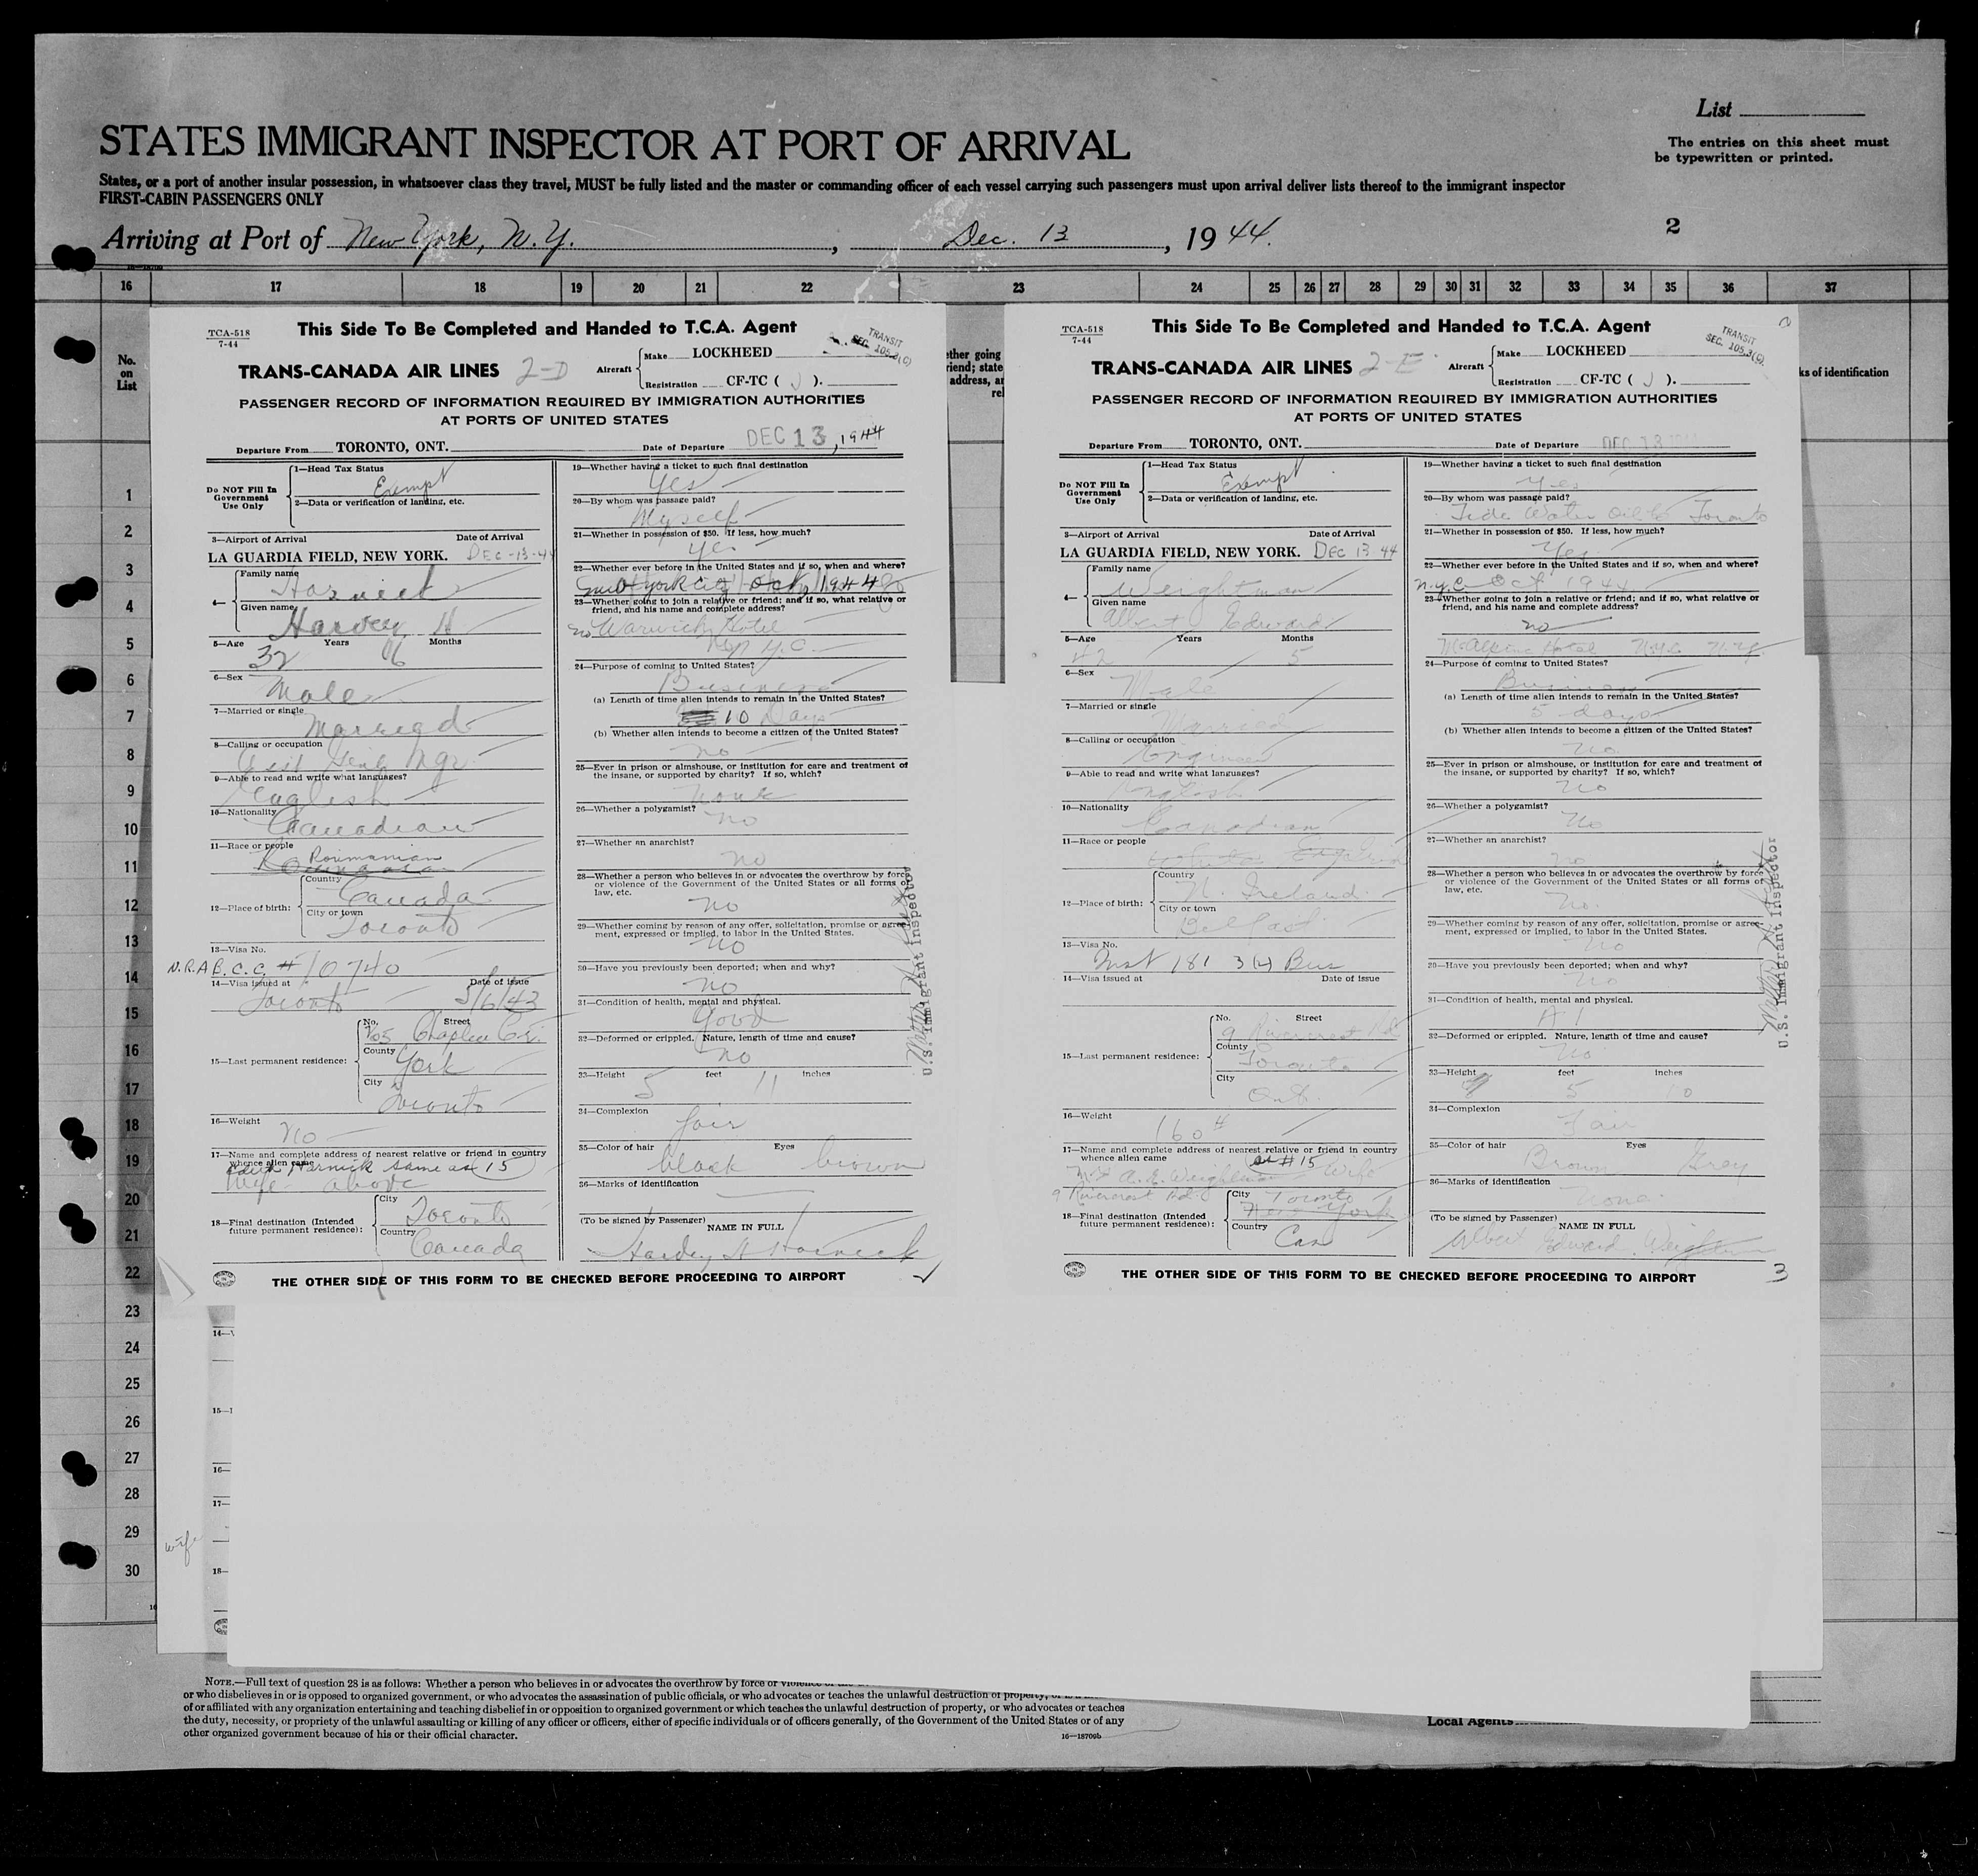 List
STATES IMMIGRANT INSPECTOR AT PORT OF ARRIVAL
The entries on this sheet must
be typewritten or printed.
States, or a port of another insular possession, in whatsoever class they travel, MUST be fully listed and the master or commanding officer of each vessel carrying such passengers must upon arrival deliver lists thereof to the immigrant inspector
FIRST-CABIN PASSENGERS ONLY
2
Arriving at Port of New York, N.Y., Dec. 13, 1944.
16 17 18 19 20 21 22 23 24 25 26 27 28 29 30 31 32 33 34 35 36 37
No.
on
List
1
2
3
4
5
6
7
8
9
10
11
12
13
14
15
16
17
18
19
20
21
22
23
24
25
26
27
28
29
30
TCA-518
7-44
This Side To Be Completed and Handed to T.C.A. Agent
TRANSIT
SEC. 105.3(C)
TRANS-CANADA AIR LINES 2-D
Aircraft
Make LOCKHEED
Registration CF-TC ( J ).
PASSENGER RECORD OF INFORMATION REQUIRED BY IMMIGRATION AUTHORITIES
AT PORTS OF UNITED STATES
Departure From TORONTO, ONT. Date of Departure DEC 13, 1944
Do NOT Fill In
Government
Use Only
1—Head Tax Status
Exempt
2—Data or verification of landing, etc.
3—Airport of Arrival Date of Arrival
LA GUARDIA FIELD, NEW YORK. DEC-13-44
4—
Family name
Given name
Harvey H
5—Age Years Months
32 6
6—Sex
Male
7—Married or single
Married
8—Calling or occupation
Asst Genl Mgr.
9—Able to read and write what languages?
English
10—Nationality
Canadian
11—Race or people
Roumanian
12—Place of birth:
Country
Canada
City or town
Toronto
13—Visa No.
N.R.A.B.C.C. # 10740
14—Visa issued at Date of issue
Toronto 5/6/43
15—Last permanent residence:
No. Street
705 Chaplin Cr.
County
York
City
Toronto
16—Weight
no
17—Name and complete address of nearest relative or friend in country
whence alien came
same as 15
Wife above
18—Final destination (Intended
future permanent residence):
City
Toronto
Country
Canada
19—Whether having a ticket to such final destination
Yes
20—By whom was passage paid?
Myself
21—Whether in possession of $50. If less, how much?
Yes
22—Whether ever before in the United States and if so, when and where?
York City Oct 1944
23—Whether going to join a relative or friend; and if so, what relative or
friend, and his name and complete address?
no Warwick Hotel
N.Y.C.
24—Purpose of coming to United States?
Business
(a) Length of time alien intends to remain in the United States?
10 Days
(b) Whether alien intends to become a citizen of the United States?
no
25—Ever in prison or almshouse, or institution for care and treatment of
the insane, or supported by charity? If so, which?
none
26—Whether a polygamist?
no
27—Whether an anarchist?
no
28—Whether a person who believes in or advocates the overthrow by force
or violence of the Government of the United States or all forms of
law, etc.
no
29—Whether coming by reason of any offer, solicitation, promise or agree-
ment, expressed or implied, to labor in the United States.
no
30—Have you previously been deported; when and why?
no
31—Condition of health, mental and physical.
Good
32—Deformed or crippled. Nature, length of time and cause?
no
33—Height 5 feet 11 inches
34—Complexion
fair
35—Color of hair Eyes
black brown
36—Marks of identification
(To be signed by Passenger) NAME IN FULL
THE OTHER SIDE OF THIS FORM TO BE CHECKED BEFORE PROCEEDING TO AIRPORT
U.S. Immigrant Inspector
ther going
riend; state
address, an
rel
TCA-518
7-44
This Side To Be Completed and Handed to T.C.A. Agent
TRANSIT
SEC. 105.3(C)
TRANS-CANADA AIR LINES 2-E
Aircraft
Make LOCKHEED
Registration CF-TC ( J ).
PASSENGER RECORD OF INFORMATION REQUIRED BY IMMIGRATION AUTHORITIES
AT PORTS OF UNITED STATES
Departure From TORONTO, ONT. Date of Departure DEC 13 1944
Do NOT Fill In
Government
Use Only
1—Head Tax Status
Exempt
2—Data or verification of landing, etc.
3—Airport of Arrival Date of Arrival
LA GUARDIA FIELD, NEW YORK. DEC 13 44
4—
Family name
Weightman
Given name
Albert Edward
5—Age Years Months
42 5
6—Sex
Male
7—Married or single
Married
8—Calling or occupation
Engineer
9—Able to read and write what languages?
English
10—Nationality
Canadian
11—Race or people
English
12—Place of birth:
Country
N. Ireland
City or town
Belfast
13—Visa No.
Inst 181 3(2) Bus
14—Visa issued at Date of issue
15—Last permanent residence:
No. Street
9 Rivercrest Rd
County
Toronto
City
Ont.
16—Weight
160#
17—Name and complete address of nearest relative or friend in country
whence alien came
as #15 Wife
Mrs A. E. Weightman
9 Rivercrest Rd.
18—Final destination (Intended
future permanent residence):
City
Toronto
New York
Country
Can
19—Whether having a ticket to such final destination
Yes
20—By whom was passage paid?
Tide Water Oil Co Toronto
21—Whether in possession of $50. If less, how much?
Yes
22—Whether ever before in the United States and if so, when and where?
N.Y.C. Oct 1944
23—Whether going to join a relative or friend; and if so, what relative or
friend, and his name and complete address?
no
McAlpine Hotel N.Y.C. N.Y.
24—Purpose of coming to United States?
Business
(a) Length of time alien intends to remain in the United States?
5 days
(b) Whether alien intends to become a citizen of the United States?
no
25—Ever in prison or almshouse, or institution for care and treatment of
the insane, or supported by charity? If so, which?
no
26—Whether a polygamist?
No
27—Whether an anarchist?
no
28—Whether a person who believes in or advocates the overthrow by force
or violence of the Government of the United States or all forms of
law, etc.
no
29—Whether coming by reason of any offer, solicitation, promise or agree-
ment, expressed or implied, to labor in the United States.
no
30—Have you previously been deported; when and why?
no
31—Condition of health, mental and physical.
A1
32—Deformed or crippled. Nature, length of time and cause?
no
33—Height 5 feet 10 inches
34—Complexion
Fair
35—Color of hair Eyes
Brown Grey
36—Marks of identification
None
(To be signed by Passenger) NAME IN FULL
Albert Edward Weightman
THE OTHER SIDE OF THIS FORM TO BE CHECKED BEFORE PROCEEDING TO AIRPORT
3
U.S. Immigrant Inspector
ks of identification
14—V
15—1
16—
17—
wife
18—
NOTE.—Full text of question 28 is as follows: Whether a person who believes in or advocates the overthrow by force or violence
or who disbelieves in or is opposed to organized government, or who advocates the assassination of public officials, or who advocates or teaches the unlawful destruction of property,
of or affiliated with any organization entertaining and teaching disbelief in or opposition to organized government or which teaches the unlawful destruction of property, or who advocates or teaches
the duty, necessity, or propriety of the unlawful assaulting or killing of any officer or officers, either of specific individuals or of officers generally, of the Government of the United States or of any
other organized government because of his or their official character.
16—18709b
Local Agents